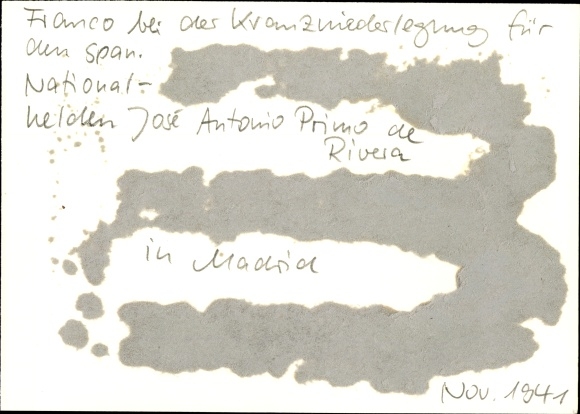 Franco bei der Kranzniederlegung für
den span.
National-
helden José Antonio Primo de
Rivera
in Madrid
Nov. 1941